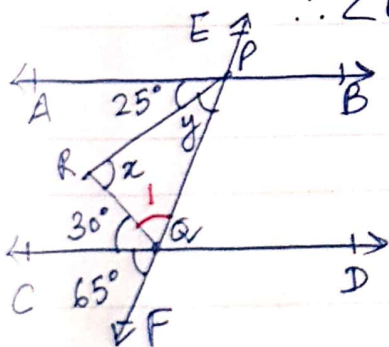 ∴ ∠
E
P
A
25°
B
y
R
x
1
30°
Q
C
65°
D
F